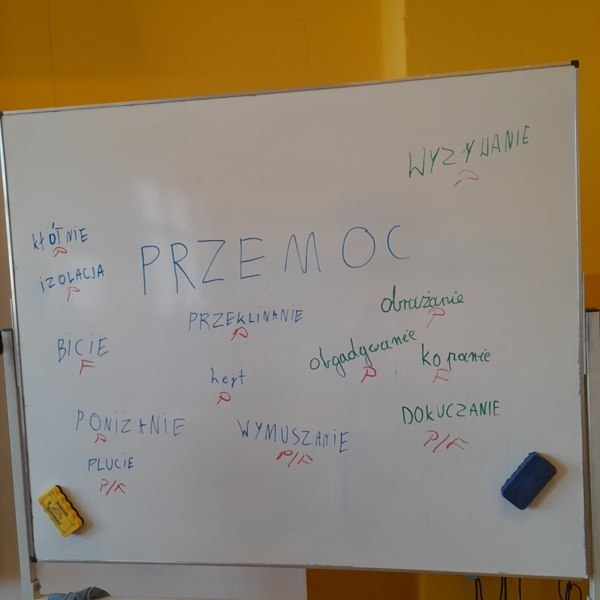 WYZYWANIE
P
KŁÓTNIE
P
IZOLACJA
P
PRZEMOC
PRZEKLINANIE
P
obrażanie
P
BICIE
F
obgadywanie
P
kopanie
F
hejt
P
PONIŻANIE
P
WYMUSZANIE
P/F
DOKUCZANIE
P/F
PLUCIE
P/F